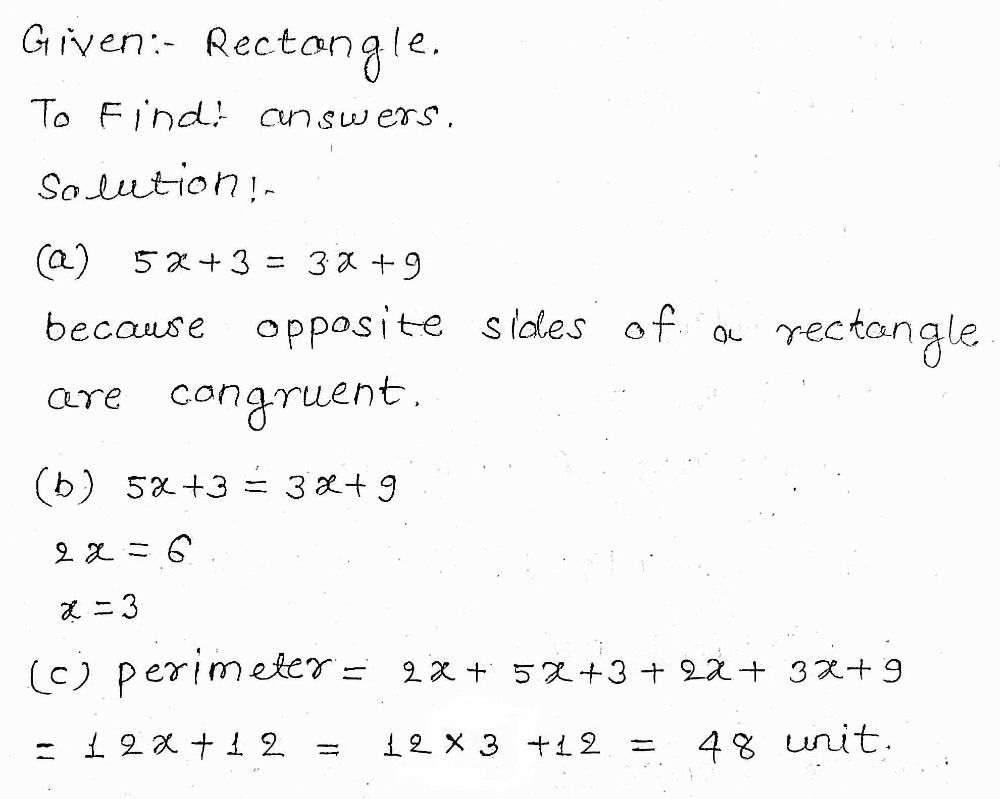 Given:- Rectangle.
To Find:- answers.
Solution:-
(a) 5x+3 = 3x+9
because opposite sides of a rectangle
are congruent.
(b) 5x+3 = 3x+9
2x = 6
x = 3
(c) perimeter = 2x + 5x+3 + 2x + 3x+9
= 12x+12 = 12 × 3 +12 = 48 unit.